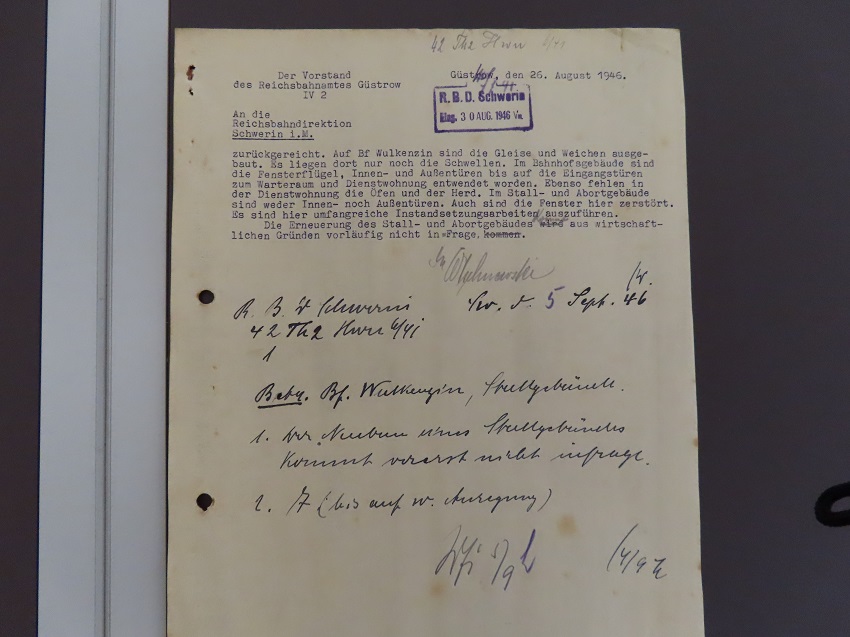 42 Th2 Hwu 6/41
Der Vorstand
des Reichsbahnamtes Güstrow
IV 2
Güstrow, den 26. August 1946.
R. B. D. Schwerin
Eing. 30 AUG. 1946
An die
Reichsbahndirektion
Schwerin i.M.
zurückgereicht. Auf Bf Wulkenzin sind die Gleise und Weichen ausge-
baut. Es liegen dort nur noch die Schwellen. Im Bahnhofsgebäude sind
die Fensterflügel, Innen- und Außentüren bis auf die Eingangstüren
zum Warteraum und Dienstwohnung entwendet worden. Ebenso fehlen in
der Dienstwohnung die Öfen und der Herd. Im Stall- und Abortgebäude
sind weder Innen- noch Außentüren. Auch sind die Fenster hier zerstört.
Es sind hier umfangreiche Instandsetzungsarbeiten auszuführen.
Die Erneuerung des Stall- und Abortgebäudes kommt wird aus wirtschaft-
lichen Gründen vorläufig nicht in Frage. kommen.
R. B. D Schwerin
Sw. d. 5 Sept. 46
42 Th2 Hwu 6/41
1
Betr. Bf. Wulkenzin, Stallgebäude.
1. Der Neubau eines Stallgebäudes
kommt vorerst nicht infrage.
2. Z (bis auf w. Anregung)
5/9